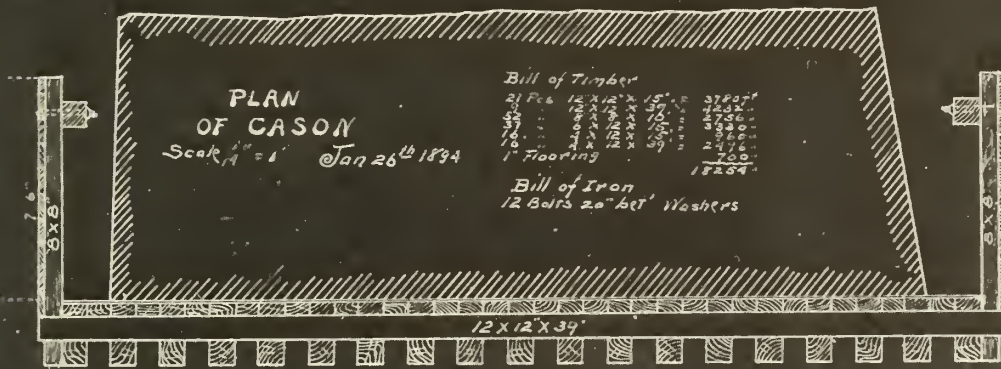 PLAN
OF CASON
Scale = 1' Jan 26th 1894
Bill of Timber
21 Pcs 12" X 12" X 15' =
12 X 12 X 39' = 4232 "
2756 "
12 X 15' = 3330 "
16 " 12 X 15' = 960 "
16 " 12 X 39' = 2496 "
1" Flooring 700 "
18254 "
Bill of Iron
12 Bolts 20" bet' Washers
7' 6"
8 X 8"
8 X 8"
12 X 12" X 39'